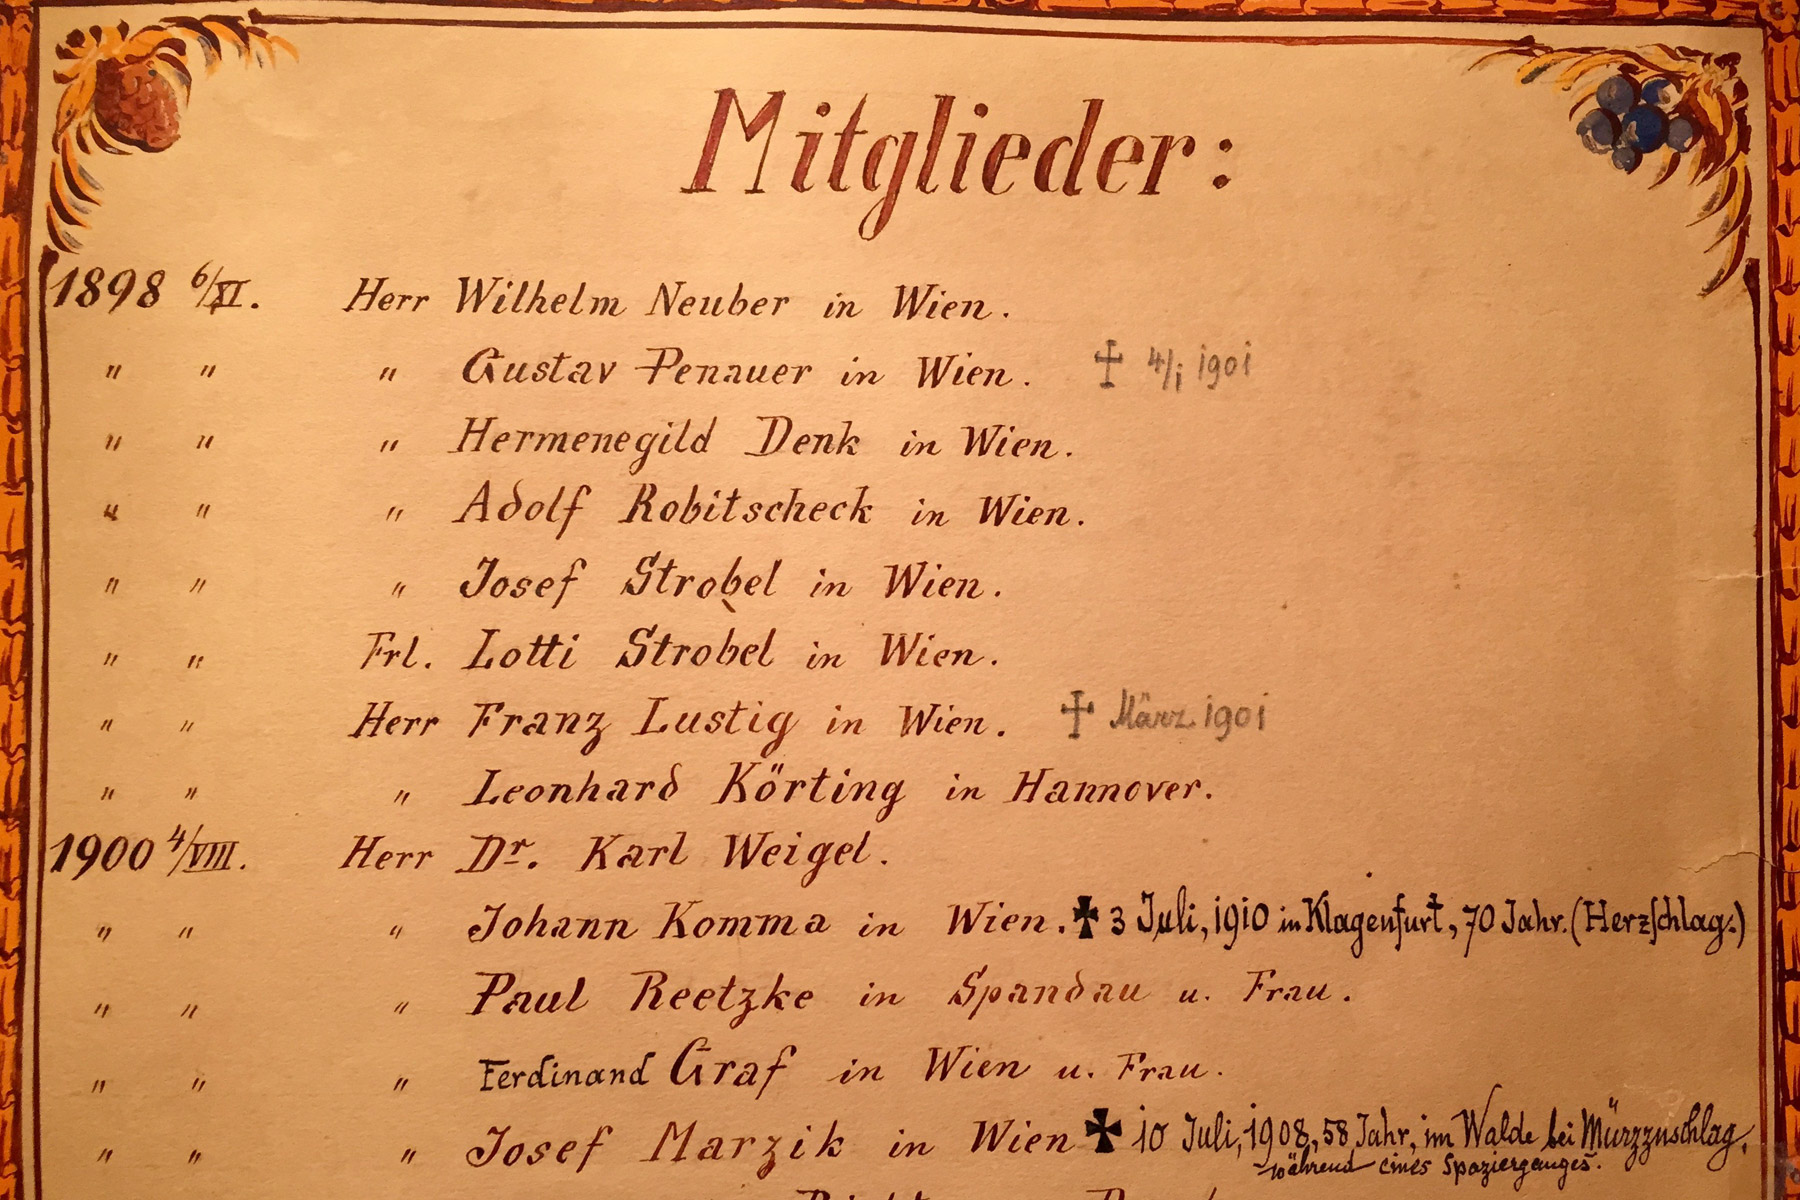 Mitglieder:
1898 6/XI. Herr Wilhelm Neuber in Wien.
" " " Gustav Penauer in Wien. † 4/I 1901
" " " Hermenegild Denk in Wien.
" " " Adolf Robitscheck in Wien.
" " " Josef Strobel in Wien.
" " Frl. Lotti Strobel in Wien.
" " Herr Franz Lustig in Wien. † März 1901
" " " Leonhard Körting in Hannover.
1900 4/VIII. Herr Dr. Karl Weigel.
" " " Johann Komma in Wien. ✠ 3 Juli, 1910 in Klagenfurt, 70 Jahr. (Herzschlag.)
" " " Paul Reetzke in Spandau u. Frau.
" " " Ferdinand Graf in Wien u. Frau.
" " " Josef Marzik in Wien ✠ 10 Juli, 1908, 58 Jahr, im Walde bei Mürzzuschlag,
während eines Spazierganges.